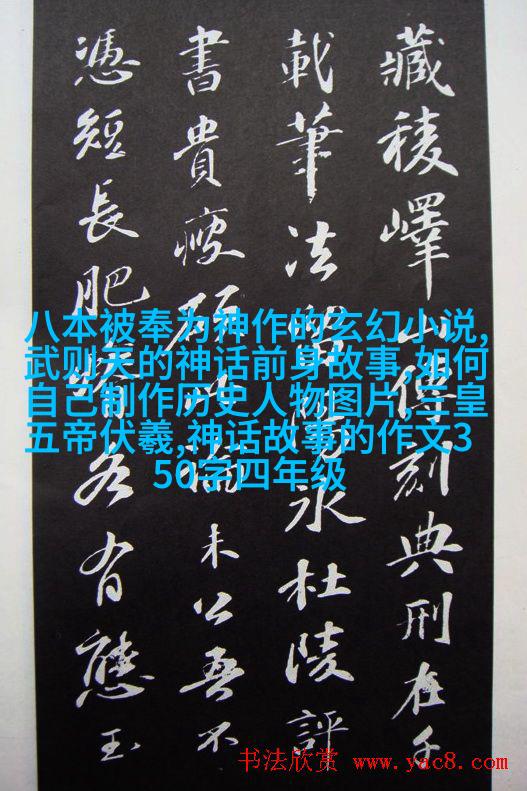 藏稜嶧山傳刻典刑在千
載筆法留陽冰杜陵評
書貴瘦硬此論未公吾不
憑短長肥瘠各有態玉
八本被奉为神作的玄幻小说,
武则天的神话前身故事,如何
自己制作历史人物图片,三皇
五帝伏羲,神话故事的作文3
50字四年级
书法欣赏 www.yac8.com